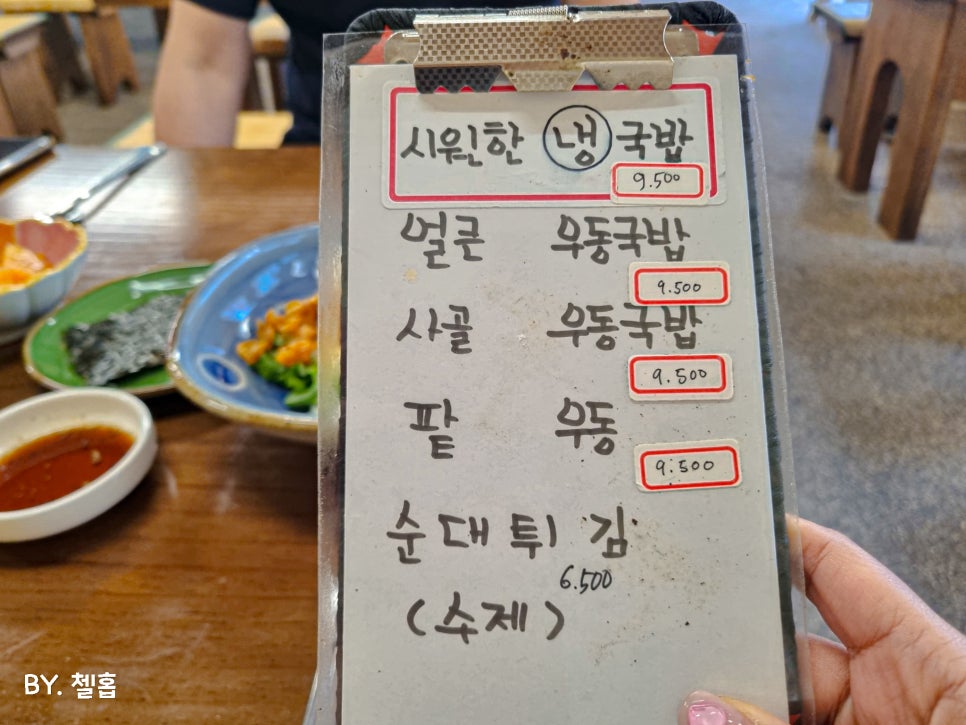 시원한 냉 국밥
9.500
얼큰 우동국밥
9.500
사골 우동국밥
9.500
팥 우동
9.500
순대튀김
6.500
(수제)
BY. 첼홉